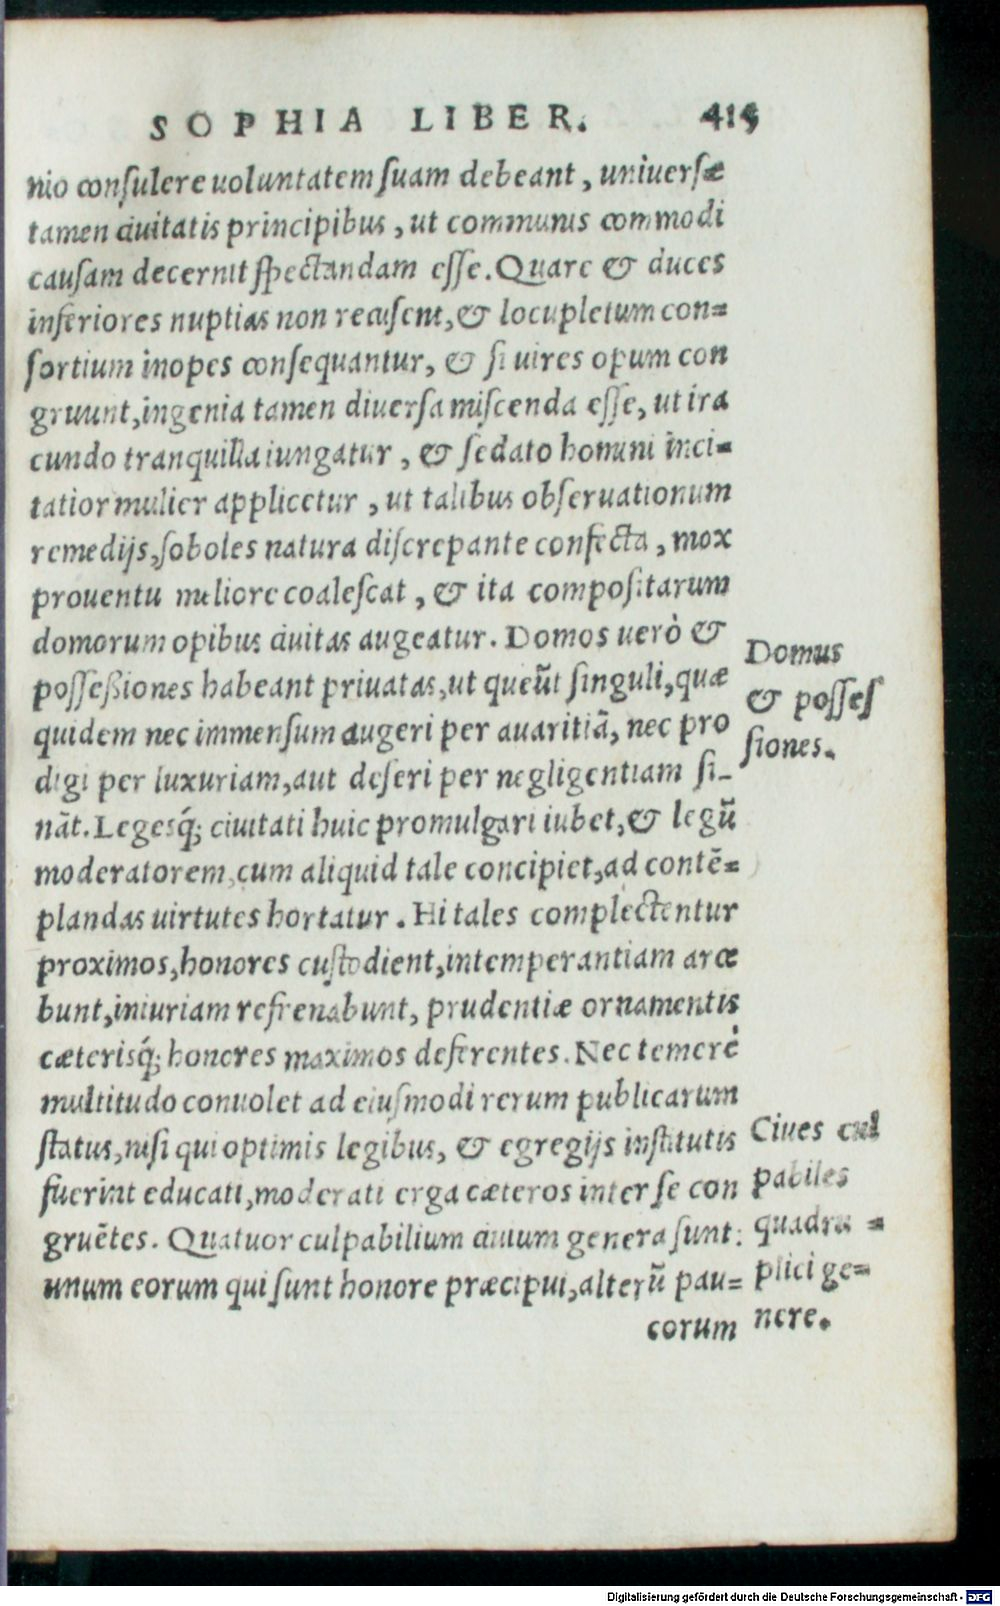 SOPHIA LIBER. 415
nio conſulere uoluntatem ſuam debeant, uniuerſæ
tamen ciuitatis principibus, ut communis commodi
cauſam decernit ſpectandam eſſe. Quare & duces
inferiores nuptias non recuſent, & locupletum con=
ſortium inopes conſequantur, & ſi uires opum con
gruunt, ingenia tamen diuerſa miſcenda eſſe, ut ira
cundo tranquilla iungatur, & ſedato homini inci=
tatior mulier applicetur, ut talibus obſeruationum
remedijs, ſoboles natura diſcrepante confecta, mox
prouentu meliore coaleſcat, & ita compoſitarum
domorum opibus ciuitas augeatur. Domos uerò &
poſſeßiones habeant priuatas, ut queũt ſinguli, quæ
quidem nec immenſum augeri per auaritiã, nec pro
digi per luxuriam, aut deſeri per negligentiam ſi_
nãt. Legesq́; ciuitati huic promulgari iubet, & legũ
moderatorem, cum aliquid tale concipiet, ad contẽ=
plandas uirtutes hortatur. Hi tales complectentur
proximos, honores cuſtodient, intemperantiam arce
bunt, iniuriam refrenabunt, prudentiæ ornamentis
cæterisq́; honores maximos deferentes. Nec temerè
multitudo conuolet ad eiuſmodi rerum publicarum
ſtatus, niſi qui optimis legibus, & egregijs inſtitutis
fuerint educati, moderati erga cæteros inter ſe con
gruẽtes. Quatuor culpabilium ciuium genera ſunt:
unum eorum qui ſunt honore præcipui, alterũ pau=
corum
Domus
& poſſeſ
ſiones.
Ciues cul
pabiles
quadru=
plici ge=
nere.
Digitalisierung gefördert durch die Deutsche Forschungsgemeinschaft - DFG